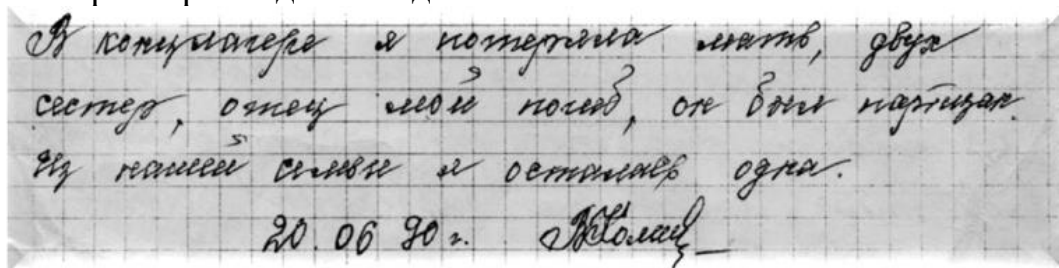 В концлагере я потеряла мать, двух
сестер, отец мой погиб, он был партизан.
Из нашей семьи я осталась одна.
20.06 90 г.